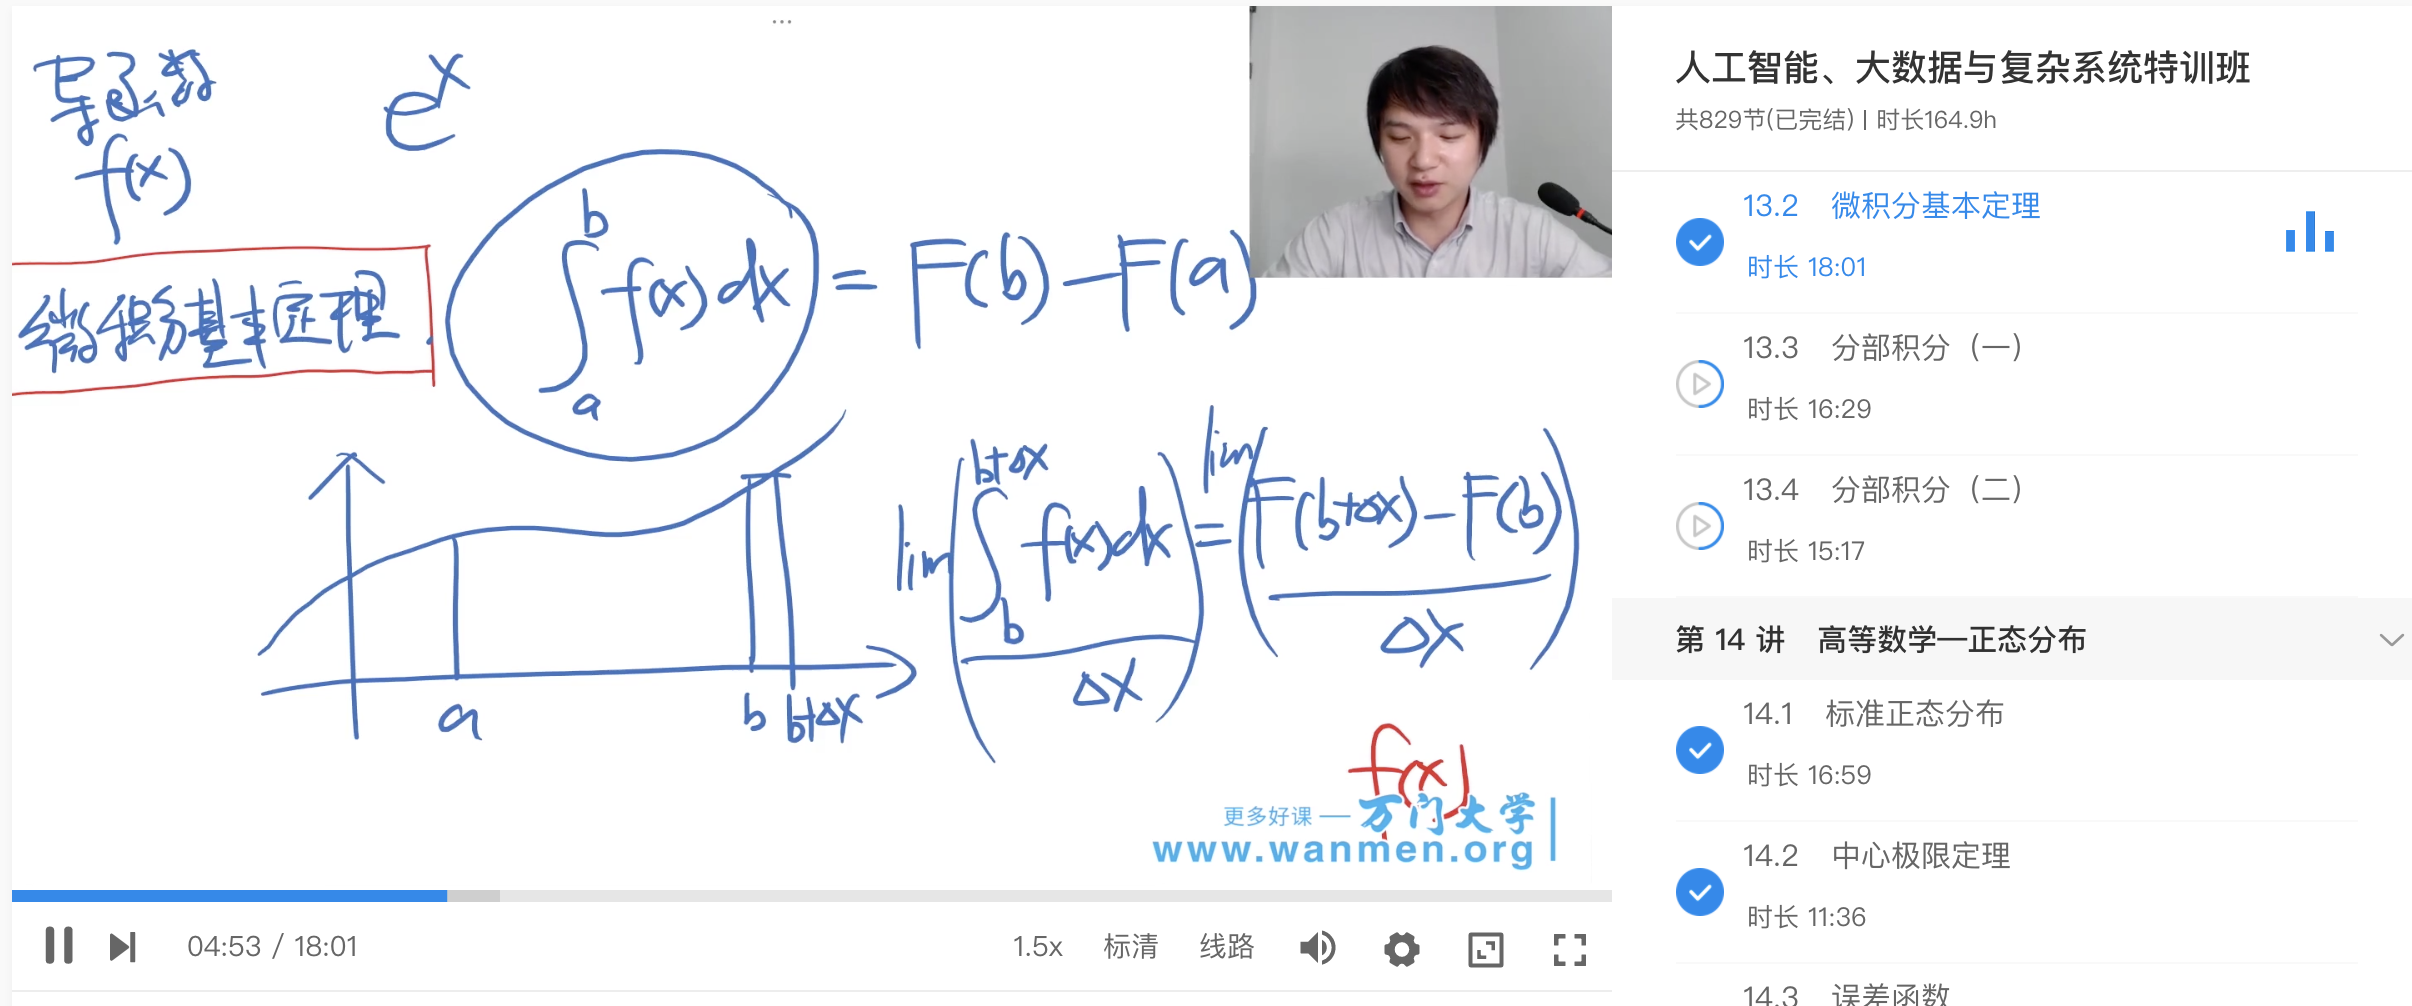 ...
导函数
f(x)
e^x
微积分基本定理.
∫_a^b f(x)dx = F(b)-F(a)
a
b
b+Δx
lim(∫_b^{b+Δx} f(x)dx / Δx) = lim(F(b+Δx)-F(b) / Δx)
f(x)
更多好课 — 万门大学
www.wanmen.org
04:53 / 18:01
1.5x
标清
线路
人工智能、大数据与复杂系统特训班
共829节(已完结) | 时长164.9h
13.2 微积分基本定理
时长 18:01
13.3 分部积分（一）
时长 16:29
13.4 分部积分（二）
时长 15:17
第 14 讲 高等数学—正态分布
14.1 标准正态分布
时长 16:59
14.2 中心极限定理
时长 11:36
14.3 误差函数